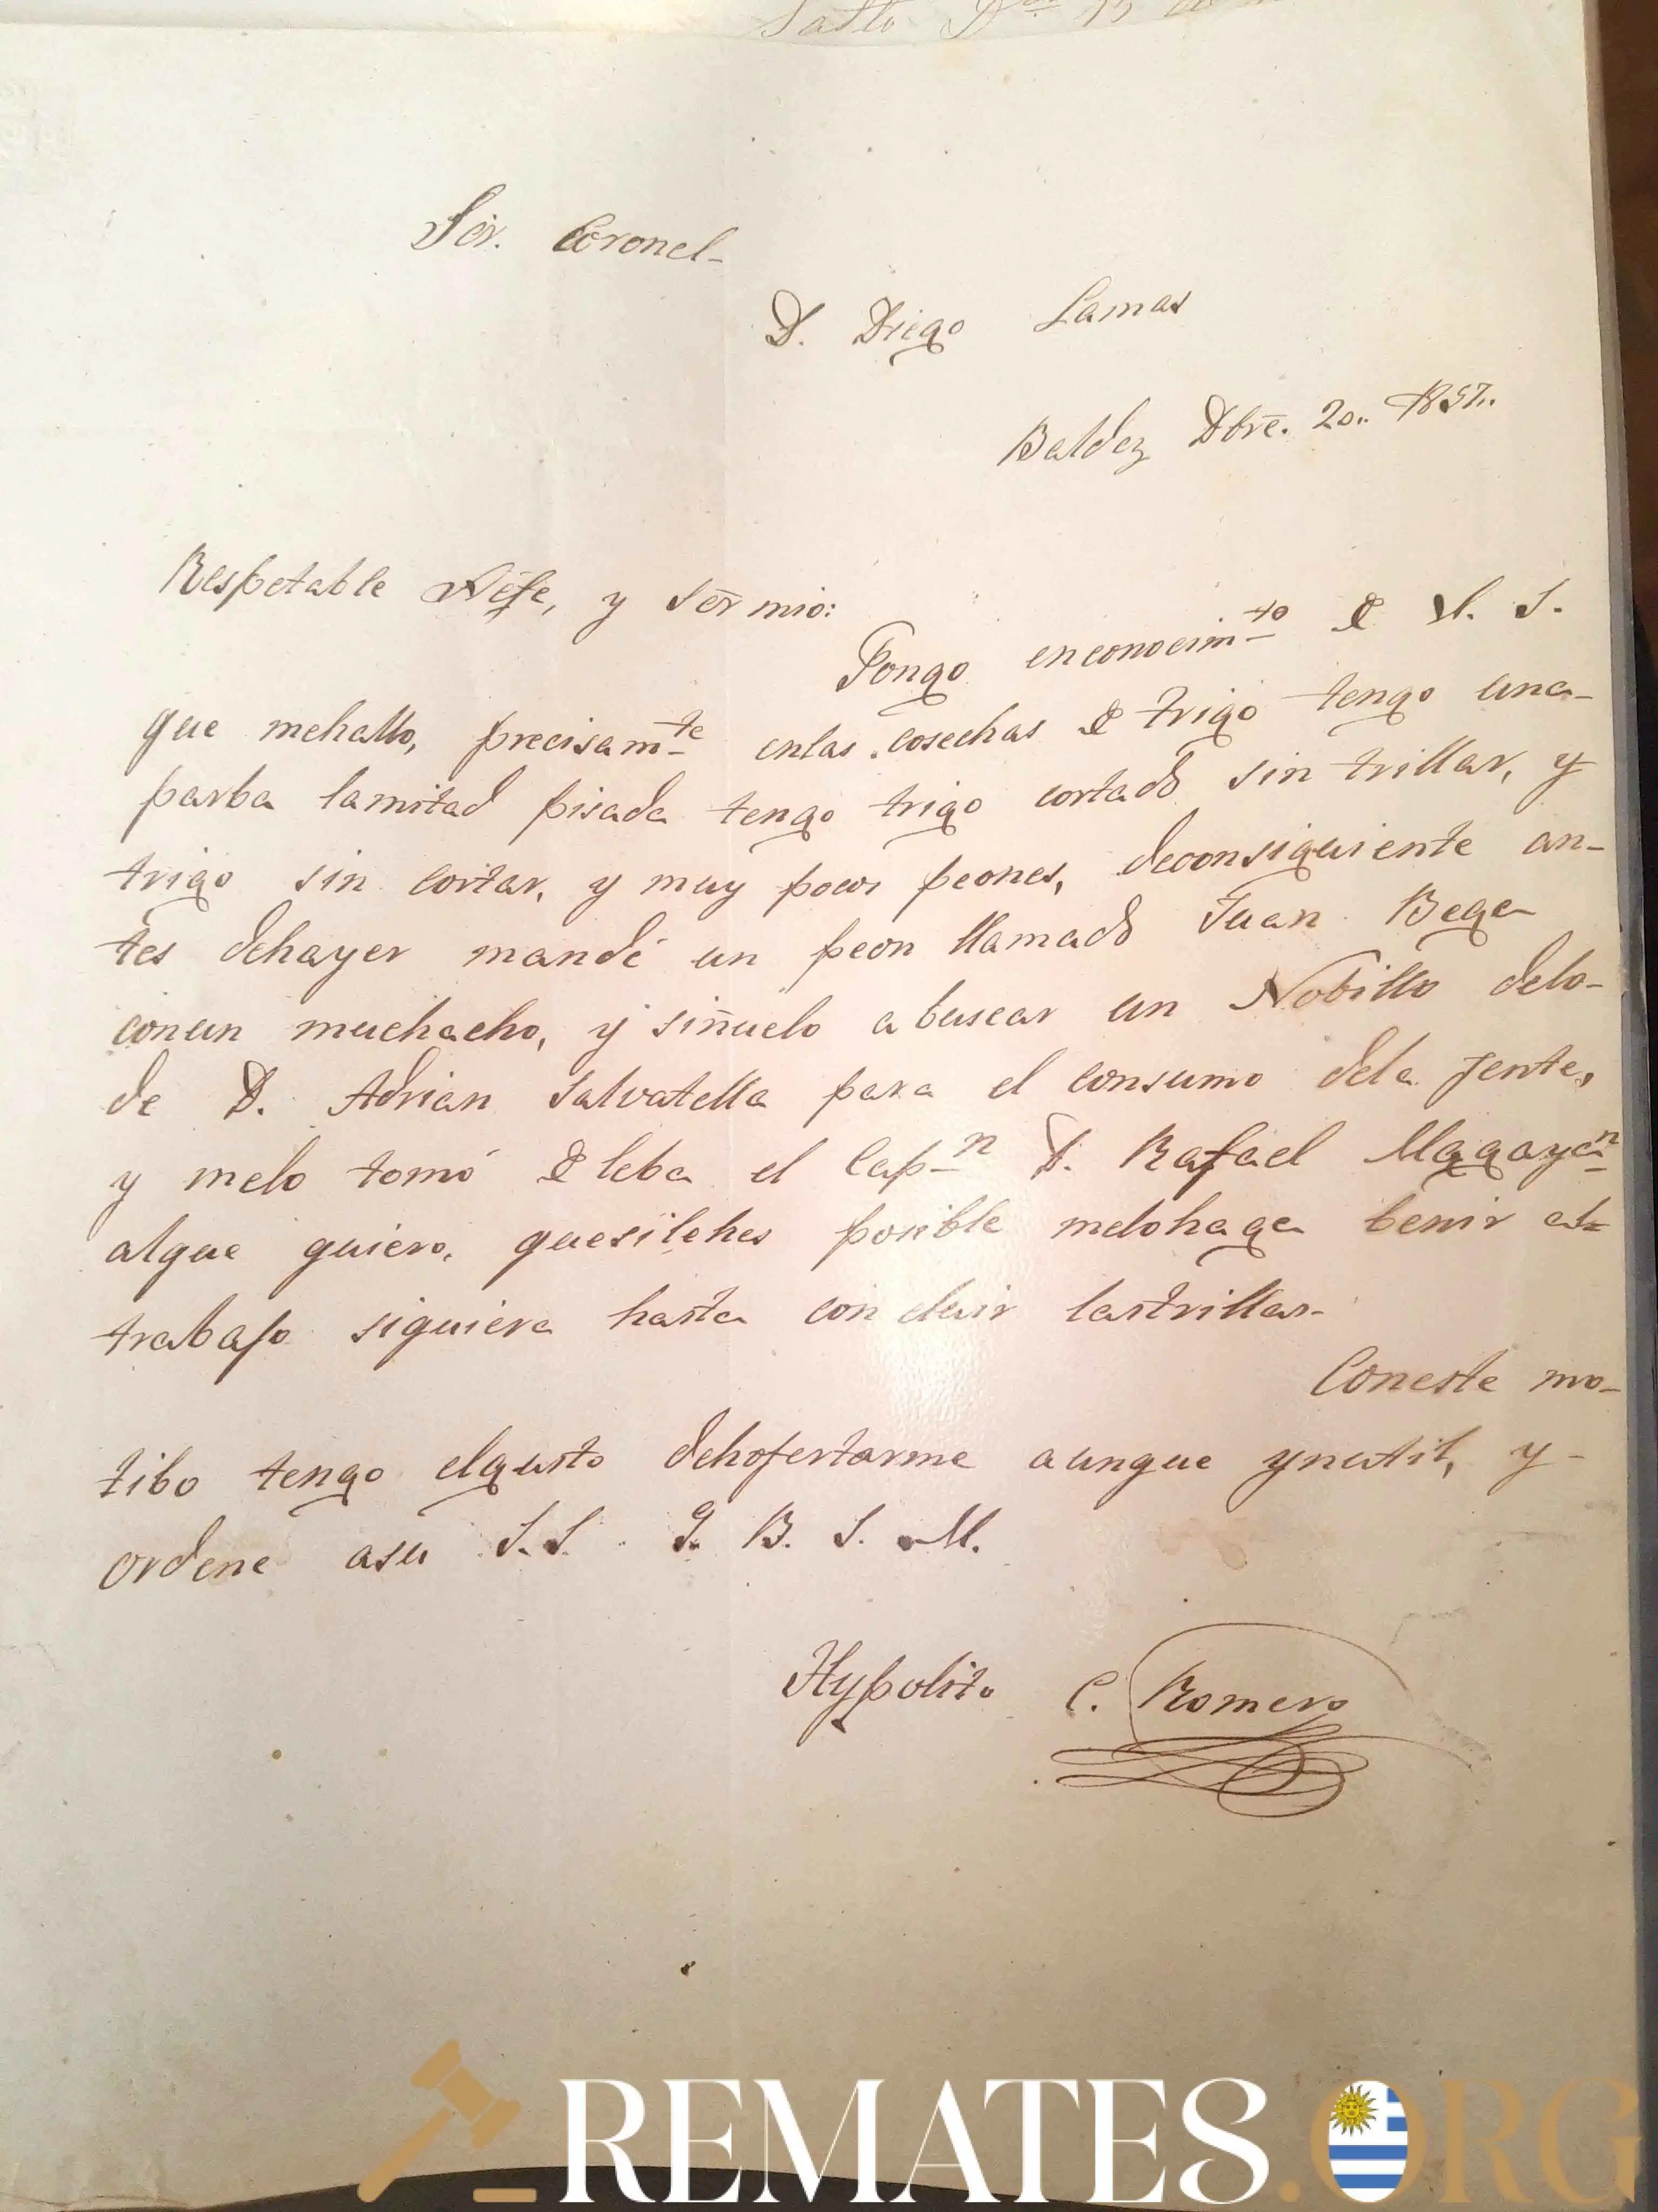 Salto D.bre 13 de
Sör. Coronel-
D. Diego Lamas
Baldez Dbre. 20.. 1857..
Respetable Xefe, y Sör mio:
Pongo enconocim.to de V. S.
que mehallo, precisam.te enlas cosechas de trigo tengo una-
parba lamitad pisada tengo trigo cortado sin trillar, y
trigo sin cortar, y muy pocos peones, deconsiguiente an-
tes dehayer mandé un peon llamado Juan Bega
conun muchacho, y siñuelo abuscar un Nobillo delo-
de D. Adrian Salvatella para el consumo dela jente,
y melo tomó de leba el Cap.n D. Rafael Magayan
alque quiero, quesilehes posible melohaga benir al
trabajo siquiera hasta concluir lastrillas.
Coneste mo-
tibo tengo elgusto dehofertarme aunque ynutil, y-
ordene asu S.S. Q. B. S. M.
Hypolito C. Romero
REMATES.ORG